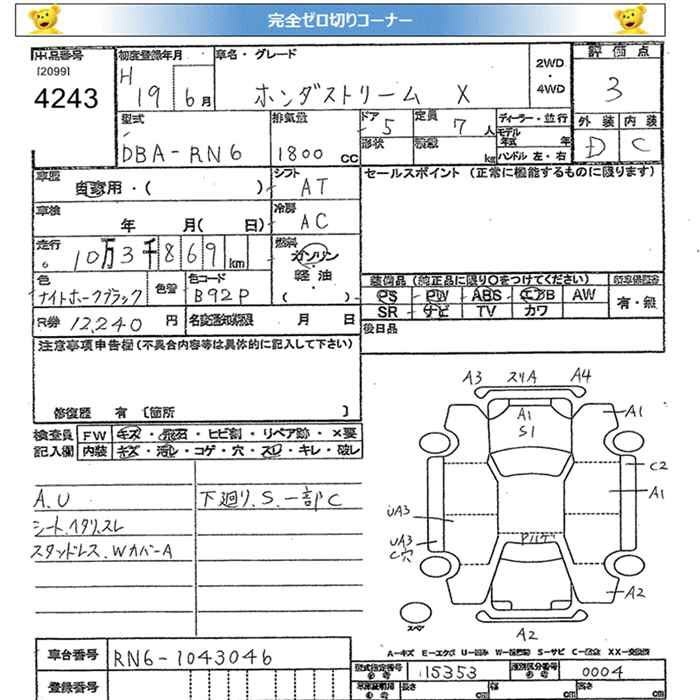 完全ゼロ切りコーナー
出品番号 初度登録年月 車名・グレード 2WD・4WD 評価点
[2099]
4243
H 19 6月 ホンダストリーム X 3
型式 排気量 ドア 5 定員 7人 ディーラー・並行 外装 内装
形状 積載 kg モデル年式 年
DBA-RN6 1800cc ハンドル 左・右 D C
車歴 自家用・( ) シフト AT セールスポイント (正常に機能するものに限ります)
車検 年 月( 日) 冷房 AC
走行 10万3千869km 燃料 ガソリン
軽油
( )
色 ナイトホークブラック 色替 色コード B92P
装備品 (純正品に限り○をつけてください) 保証書
PS・PW・ABS・エアB AW 有・無
SR・ナビ TV カワ
R券 12,240円 名義変更期限 月 日 後日品
注意事項申告欄(不具合内容等は具体的に記入して下さい)
修復歴 有 〔箇所 〕
検査員 FW キズ・飛石・ヒビ割・リペア跡・×要
記入欄 内装 キズ・汚レ・コゲ・穴・スレ・キレ・破レ
A.U
シート.ヘタリ.スレ
スタッドレス.WカバーA
下廻り.S.一部C
A3 スリA A4
A1
S1
A1
C2
A1
UA3
UA3
C穴
A2
スペア
A2
A-キズ E-エクボ U-凹み W-補修跡 S-サビ C-腐食 XX-交換済
車台番号 RN6-1043046 型式指定番号 15353 類別区分番号 0004
登録番号 長さ cm 幅 cm 高さ cm